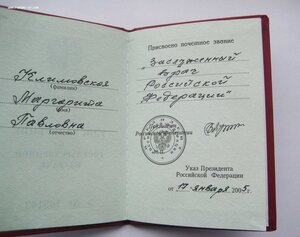 Климовская
(фамилия)
Маргарита
(имя)
Павловна
(отчество)
Присвоено почетное звание
"Заслуженный
врач
Российской
Федерации"
Президент
Российской Федерации
Указ Президента
Российской Федерации
от 17 января 2005 г.